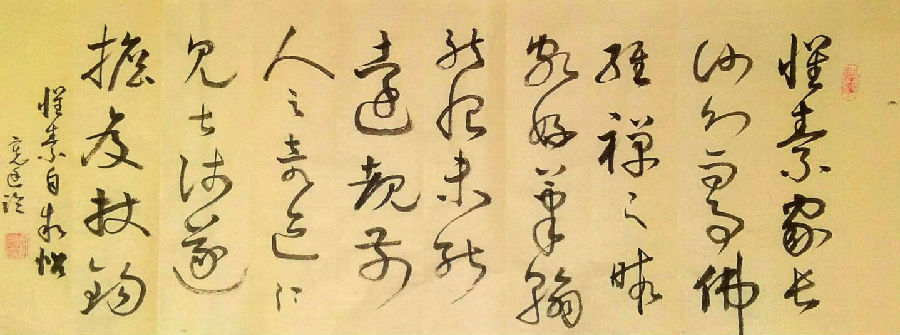 懷素家長
沙幼而事佛
經禪之暇
頗好筆翰
然恨未能
遠覩前
人之奇迹所
見甚淺遂
擔笈杖錫
懷素自叙帖